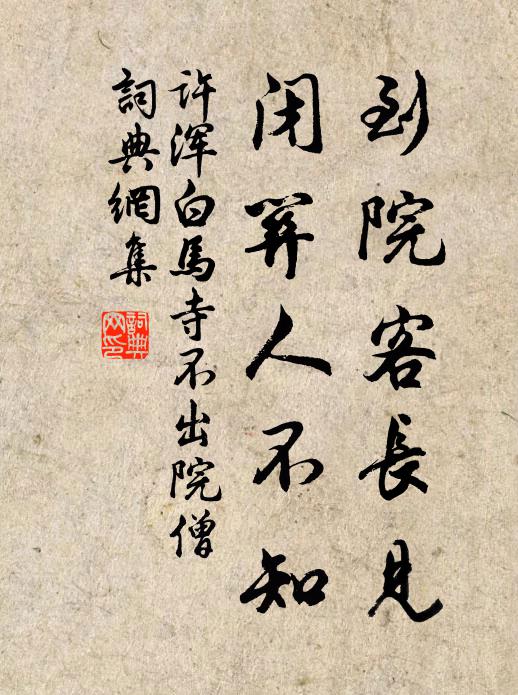 到院客長見
閉關人不知
許渾白馬寺不出院僧
詞典網集
詞典网印